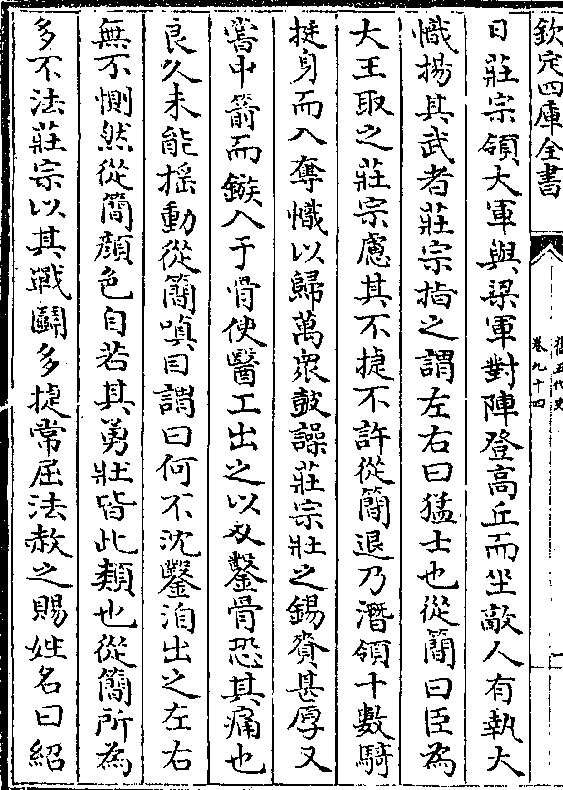 欽定四庫全書
舊五代史
卷九十四
日莊宗領大軍與梁軍對陣登高丘而坐敵人有執大
幟揚其武者莊宗指之謂左右曰猛士也從簡曰臣為
大王取之莊宗慮其不捷不許從簡退乃潛領十數騎
挺身而入奪幟以歸萬衆鼓譟莊宗壯之錫賚甚厚又
嘗中箭而鏃入于骨使醫工出之以刃鑿骨恐其痛也
良久未能搖動從簡嗔目謂曰何不沈鑿洎出之左右
無不惻然從簡顔色自若其勇壯皆此類也從簡所為
多不法莊宗以其戰鬭多捷常屈法赦之賜姓名曰紹